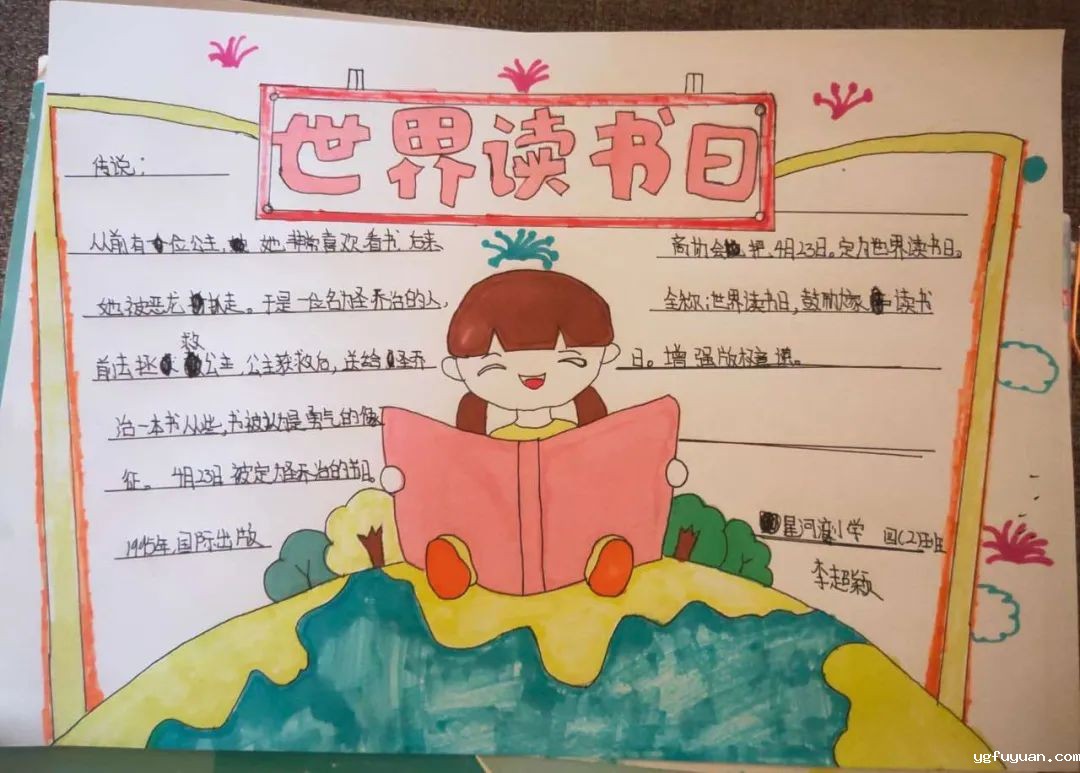 世界读书日
传说：
从前有位公主,她非常喜欢看书,后来
她被恶龙扒走。于是一位名为圣乔治的人,
救
前去拯公主,公主获救后,送给圣乔
治一本书从些,书被认为是勇气的像
征。4月23日被定为圣乔治的节日。
1995年国际出版
商协会把4月23日。定为世界读书日。
全称:世界读书日,鼓励大家读书
日。增强版权意识。
星河湾小学 四(2)班
李超颖
ygfuyuan.com